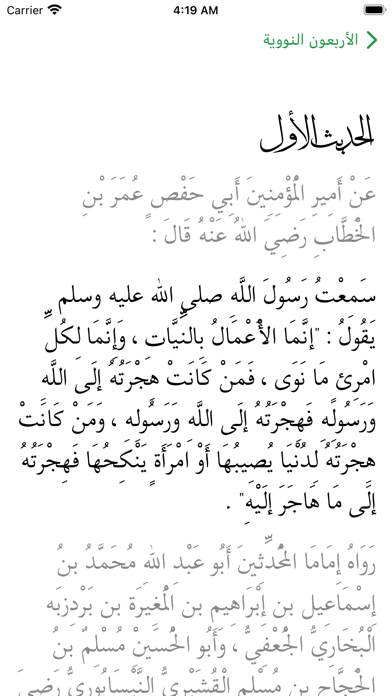 Carrier 4:19 AM
الأربعون النووية
الحديث الأول
عَنْ أَمِيرِ الْمُؤْمِنِينَ أَبِي حَفْصٍ عُمَرَ بْنِ
الْخَطَّابِ رَضِيَ اللهُ عَنْهُ قَالَ :
سَمِعْتُ رَسُولَ اللَّهِ صلى الله عليه وسلم
يَقُولُ : "إنَّمَا الأَعْمَالُ بِالنِّيَّاتِ ، وَإِنَّمَا لِكُلِّ
امْرِئٍ مَا نَوَى ، فَمَنْ كَانَتْ هِجْرَتُهُ إلَى اللَّهِ
وَرَسُولِهِ فَهِجْرَتُهُ إلَى اللَّهِ وَرَسُولِهِ ، وَمَنْ كَانَتْ
هِجْرَتُهُ لِدُنْيَا يُصِيبُهَا أَوْ امْرَأَةٍ يَنْكِحُهَا فَهِجْرَتُهُ
إلَى مَا هَاجَرَ إلَيْهِ" .
رَوَاهُ إِمَامَا الْمُحَدِّثِينَ أَبُو عَبْدِ اللهِ مُحَمَّدُ بنُ
إِسْمَاعِيل بن إِبْرَاهِيم بن الْمُغِيرَة بن بَرْدِزبَه
الْبُخَارِيُّ الْجُعْفِيُّ ، وَأَبُو الْحُسَيْنِ مُسْلِمٌ بنُ
الْحَجَّاج بن مُسْلِم الْقُشَيْرِيُّ النَّيْسَابُورِيُّ رَضِيَ